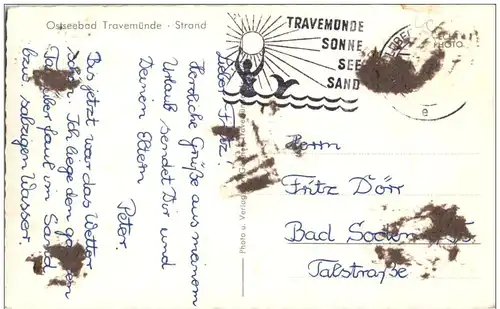 Ostseebad Travemünde · Strand
TRAVEMÜNDE
SONNE
SEE
SAND
PHOTO
e
Lieber Fritz,
Herzliche Grüße aus meinem
Urlaub sendet Dir und
Deinen Eltern
Peter
Bis jetzt war das Wetter
Ich liege den
über faul im Sand
bzw. salzigen Wasser.
Photo u. Verlag
Herrn
Fritz Dörr
Bad Soden
Talstraße